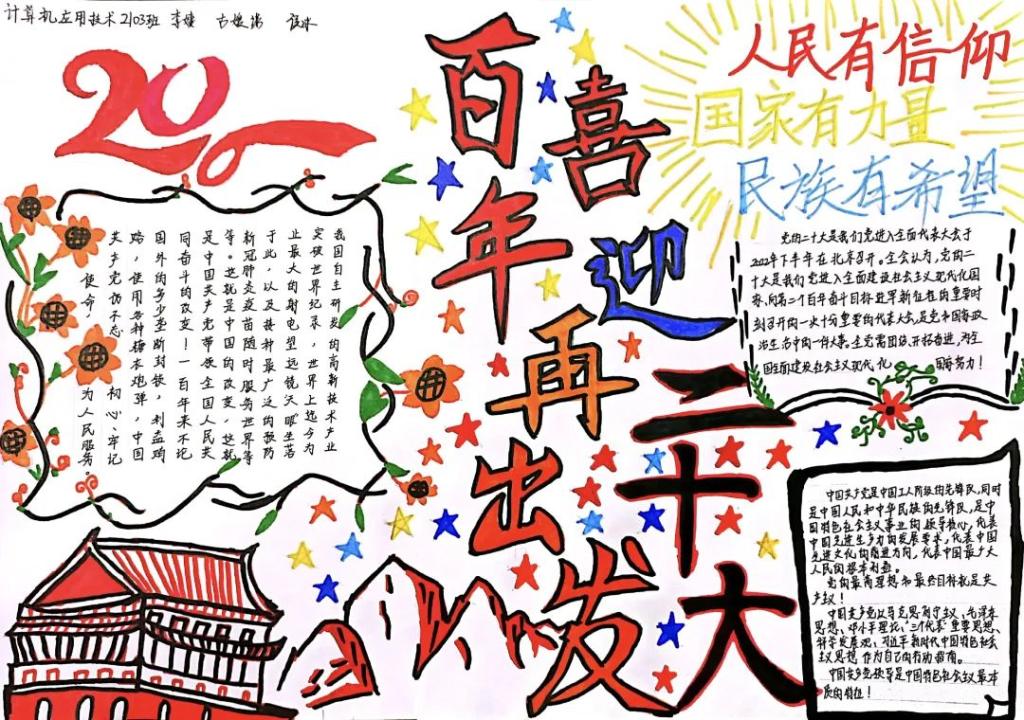 计算机应用技术2103班 李
20
百年再出发
喜迎二十大
人民有信仰
国家有力量
民族有希望
我国自主研发的高新技术产业
突破世界纪录，世界上迄今为
止最大的射电望远镜天眼坐落
于此，以及接种最广泛的预防
新冠肺炎疫苗随时服务世界等
等。这就是中国的改变，这就
是中国共产党带领全国人民共
同奋斗的改变！一百年来不论
国外的多少垄断封锁，利益确
踏，使用各种糖衣炮弹，中国
共产党仍不忘初心、牢记
使命，为人民服务。
党的二十大是我们党进入全面代表大会于
2022年下半年在北京召开。全会认为，党的二
十大是我们党进入全面建设社会主义现代化国
家、向第二个百年奋斗目标进军新征程的重要时
刻召开的一次十分重要的代表大会，是党和国家政
治生活中的一件大事。全党要团结、开拓奋进，为全
面建设社会主义现代化国家努力！
中国共产党是中国工人阶级的先锋队，同时
是中国人民和中华民族的先锋队，是中
国特色社会主义事业的领导核心，代表
中国先进生产力的发展要求，代表中国
先进文化的前进方向，代表中国最广大
人民的根本利益。
党的最高理想和最终目标就是共
产主义！
中国共产党以马克思列宁主义、毛泽东
思想、邓小平理论、“三个代表”重要思想、
科学发展观、习近平新时代中国特色社会
主义思想作为自己的行动指南。
中国共产党领导是中国特色社会主义最本
质的特征！